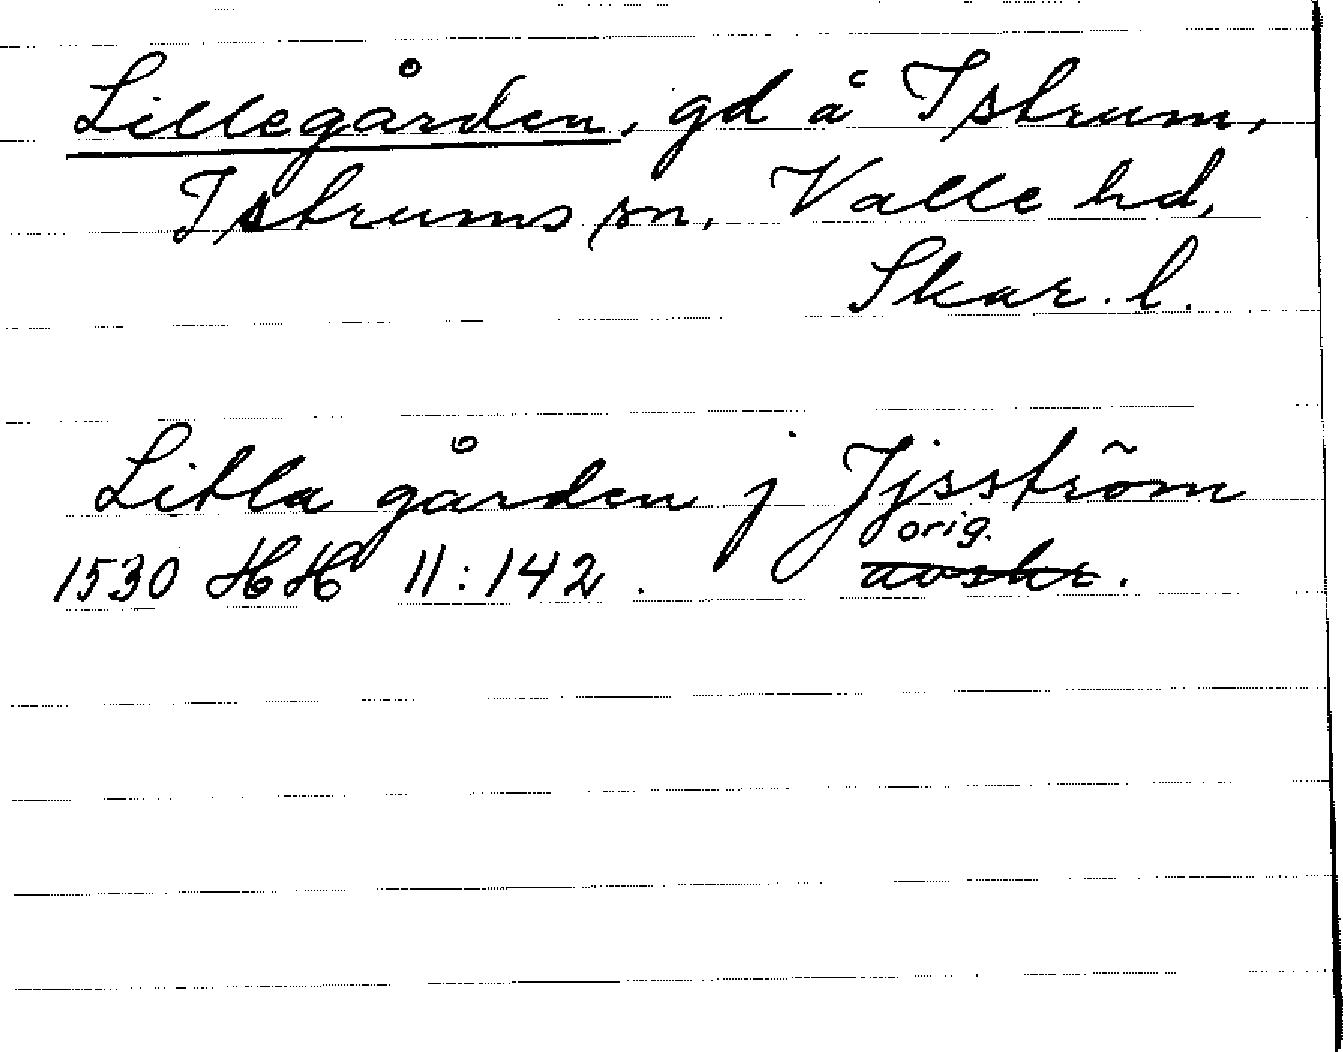 Lillegården, gd å Istrum,
Istrums sn, Valle hd,
Skar. l.
Litla gården j Jjsström
orig.
1530 HH 11:142. avskr.